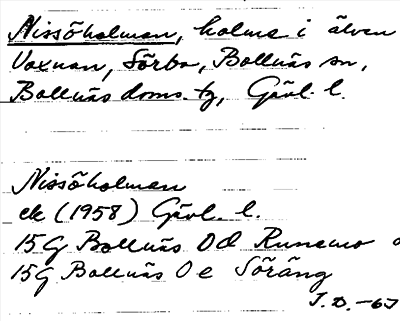 Nissöholmen, holme i älven
Voxnan, Sörbo, Bollnäs sn,
Bollnäs doms. tg, Gävl. l.
Nissöholmen
ek (1958) Gävl. l.
15G Bollnäs 0d Runemo
15G Bollnäs 0e Söräng
I.D. -67